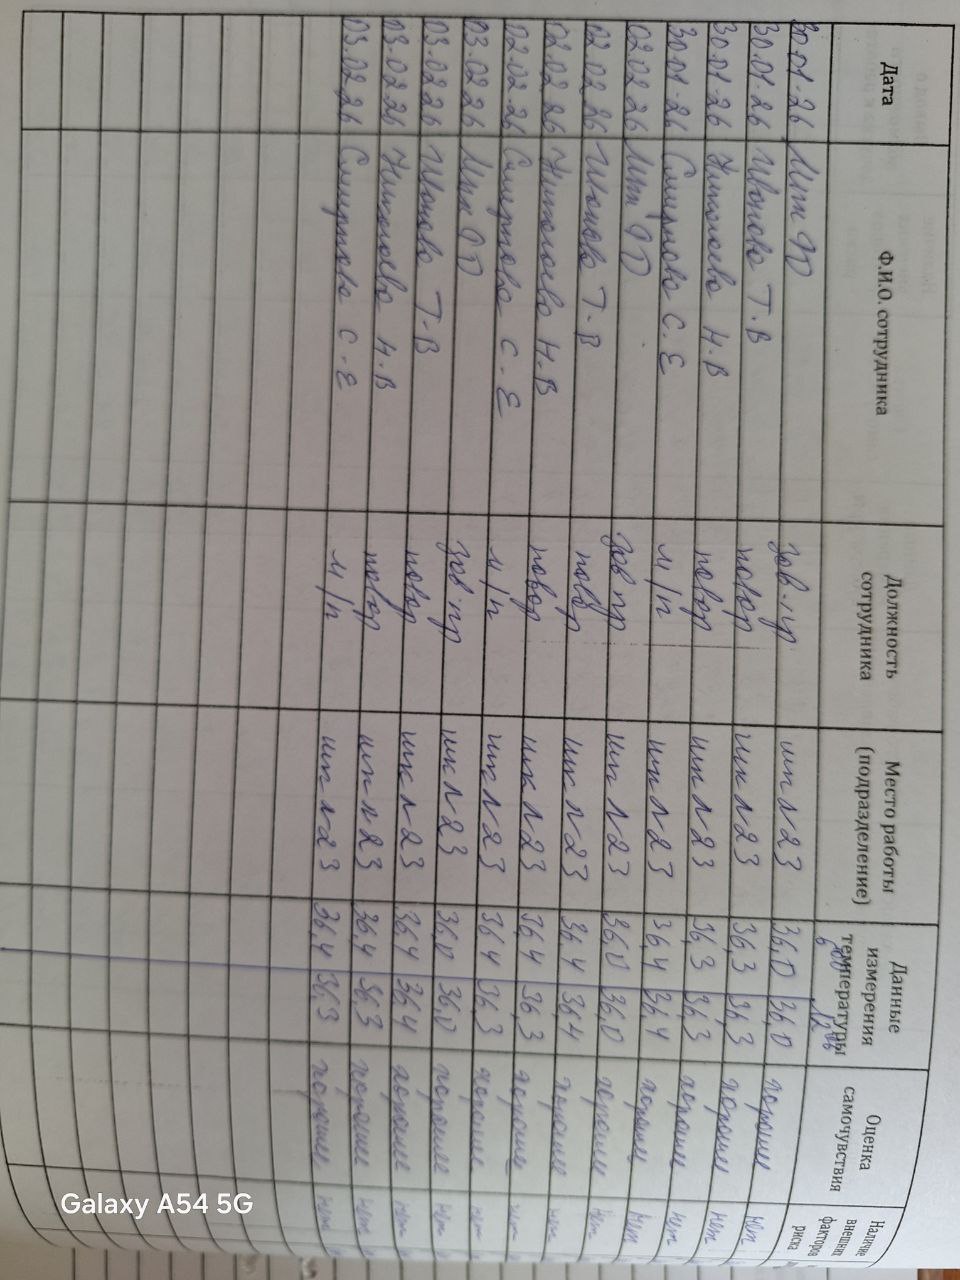 Дата Ф.И.О. сотрудника Должность сотрудника Место работы (подразделение) Данные измерения температуры Оценка самочувствия Наличие внешних факторов риска
30.01.26 зав.пр шк №23 36,0 36,0 хорошее нет
30.01.26 Иванова Т.В повар шк №23 36,3 36,3 хорошее нет
30.01.26 Николаева Н.В повар шк №23 36,3 36,3 хорошее нет
30.01.26 Смирнова С.Е м/п шк №23 36,4 36,4 хорошее нет
02.02.26 зав пр шк №23 36,0 36,0 хорошее нет
02.02.26 Иванова Т.В повар шк №23 36,4 36,4 хорошее нет
02.02.26 Николаева Н.В повар шк №23 36,4 36,3 хорошее нет
02.02.26 Смирнова С.Е м/п шк №23 36,4 36,3 хорошее нет
03.02.26 зав.пр шк №23 36,0 36,0 хорошее нет
03.02.26 Иванова Т.В повар шк №23 36,4 36,4 хорошее нет
03.02.26 Николаева Н.В повар шк №23 36,4 36,3 хорошее нет
03.02.26 Смирнова С.Е м/п шк №23 36,4 36,3 хорошее нет
Galaxy A54 5G